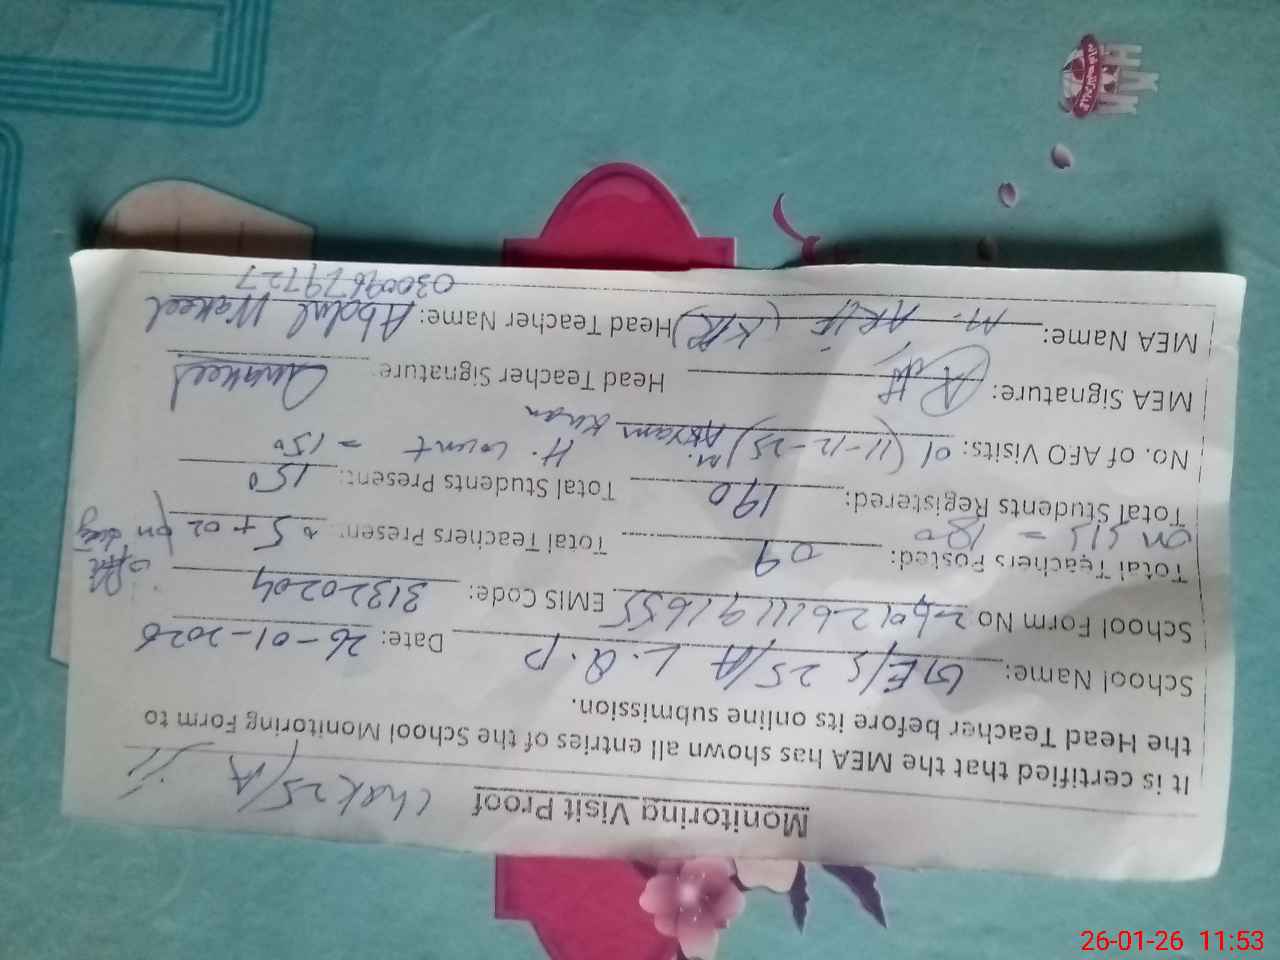 Monitoring Visit Proof Chak 25/A
It is certified that the MEA has shown all entries of the School Monitoring Form to
the Head Teacher before its online submission.
School Name: GE/S 25/A L.Q.P Date: 26-01-2026
School Form No EMIS Code: 31320204
Total Teachers Posted: 09 Total Teachers Present: 05 + 02 on duty
on SIS = 180
Total Students Registered: 190 Total Students Present: 150
No. of AEO Visits: 01 (11-12-25) M. Akram Khan H. count = 150
MEA Signature: Head Teacher Signature:
MEA Name: M. ARIF Head Teacher Name: Abdul Wakeel
03009679727
26-01-26 11:53